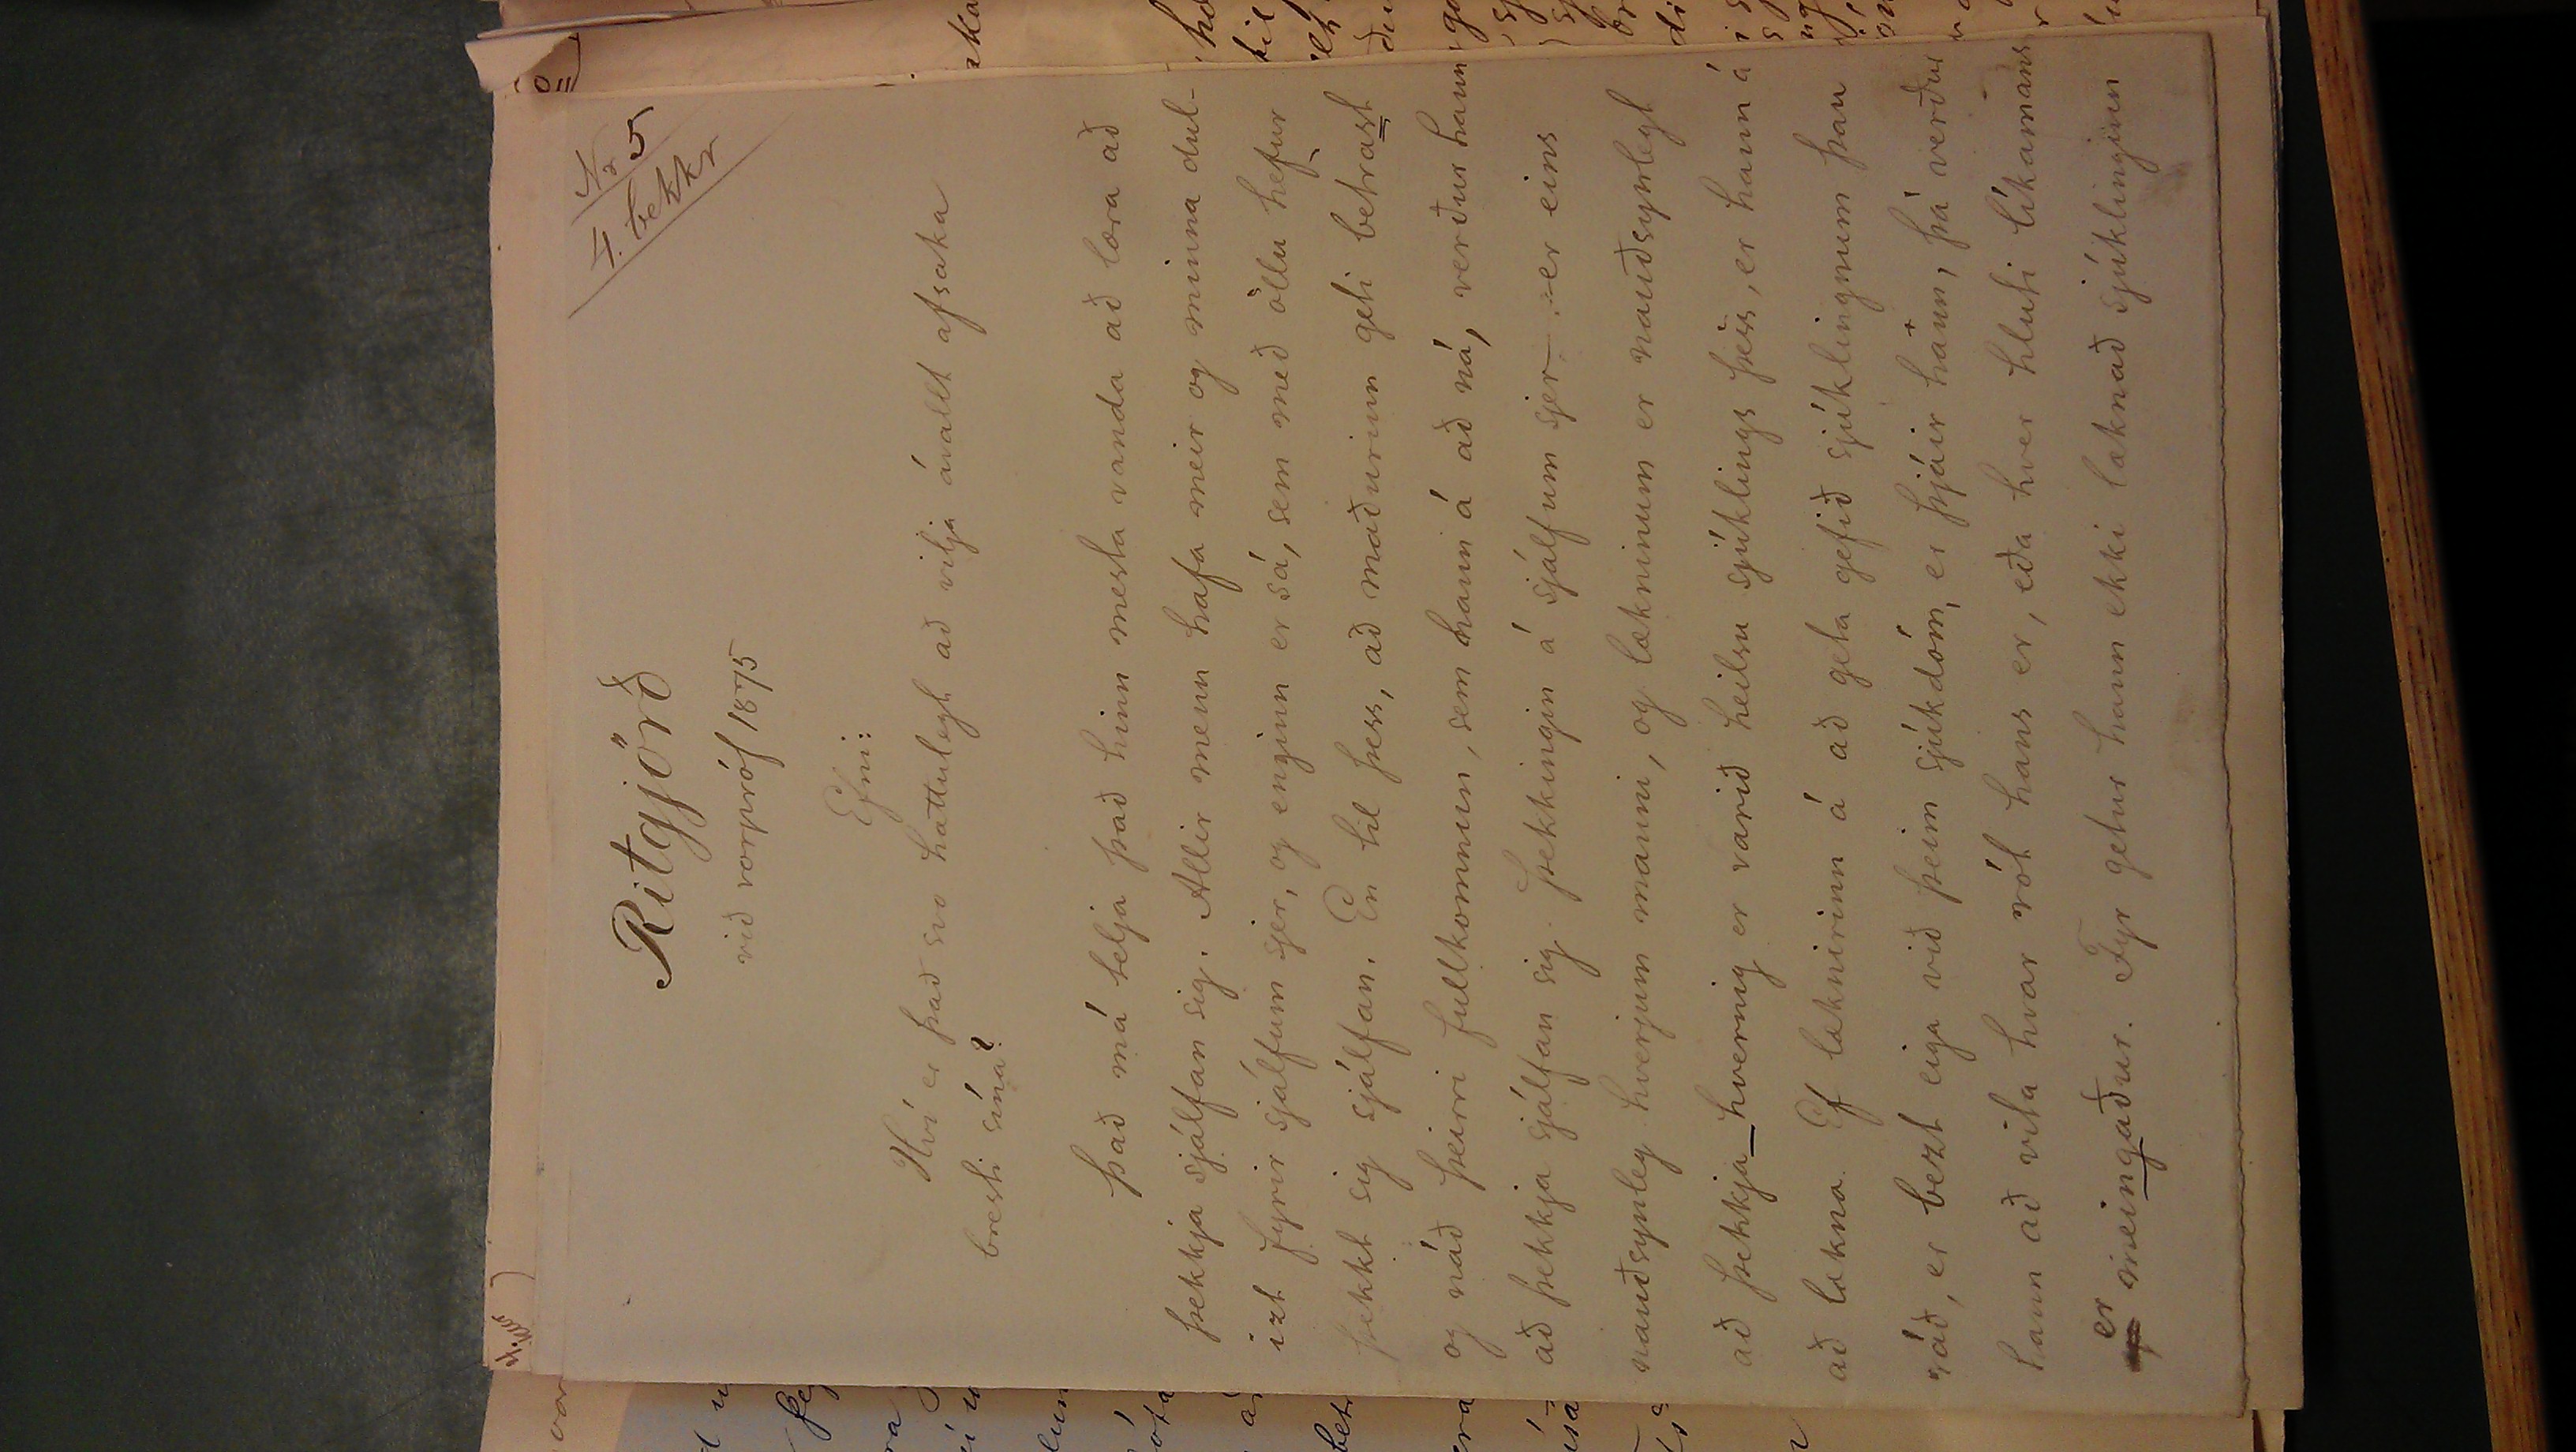 Nr 5
4. bekkr
Ritgjörð
við vorpróf 1875
Efni:
Hví er það svo hættulegt að vilja ávallt afsaka
bresti sína?
Það má telja það hinn mesta vanda að læra að
þekkja sjálfan sig. Allir menn hafa meir og minna dul-
izt fyrir sjálfum sjer, og enginn er sá, sem með öllu hefur
þekkt sig sjálfan. En til þess, að maðurinn geti betrast
og náð þeirri fullkomnun, sem hann á að ná, verður hann
að þekkja sjálfan sig. Þekkingin á sjálfum sjer er eins
nauðsynleg hverjum manni, og lækninum er nauðsynlegt
að þekkja hvernig er varið heilsu sjúklings þess, er hann á
að lækna. Ef læknirinn á að geta gefið sjúklingnum þau
ráð, er bezt eiga við þeim sjúkdóm, er þjáir hann, þá verður
hann að vita hvar rót hans er, eða hver hluti líkamans
er meingaður. Fyr getur hann ekki læknað sjúklinginn